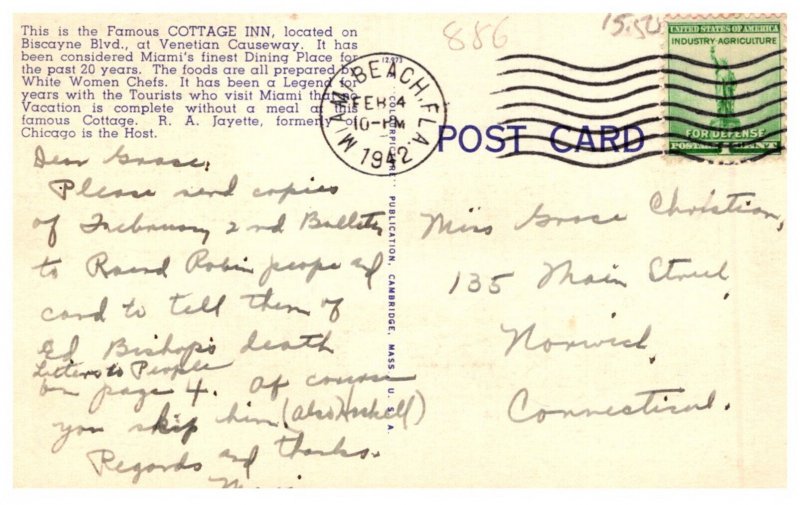 This is the Famous COTTAGE INN, located on
Biscayne Blvd., at Venetian Causeway. It has
been considered Miami's finest Dining Place for
the past 20 years. The foods are all prepared by
White Women Chefs. It has been a Legend for
years with the Tourists who visit Miami that no
Vacation is complete without a meal at this
famous Cottage. R. A. Jayette, formerly of
Chicago is the Host.
886
15.50
UNITED STATES OF AMERICA
INDUSTRY-AGRICULTURE
FOR DEFENSE
POSTAGE 1 CENT
MIAMI BEACH, FLA.
FEB 4
10-PM
1942
12,973
POST CARD
PUBLICATION, CAMBRIDGE, MASS., U. S. A.
Dear Grace,
Please send copies
of February 2nd Bulletin
to Round Robin people and
card to tell them of
Ed Bishop's death
Letters to People
on page 4. Of course
you skip him (also
Regards and thanks.
Miss Grace Christian,
135 Main Street,
Norwich,
Connecticut.